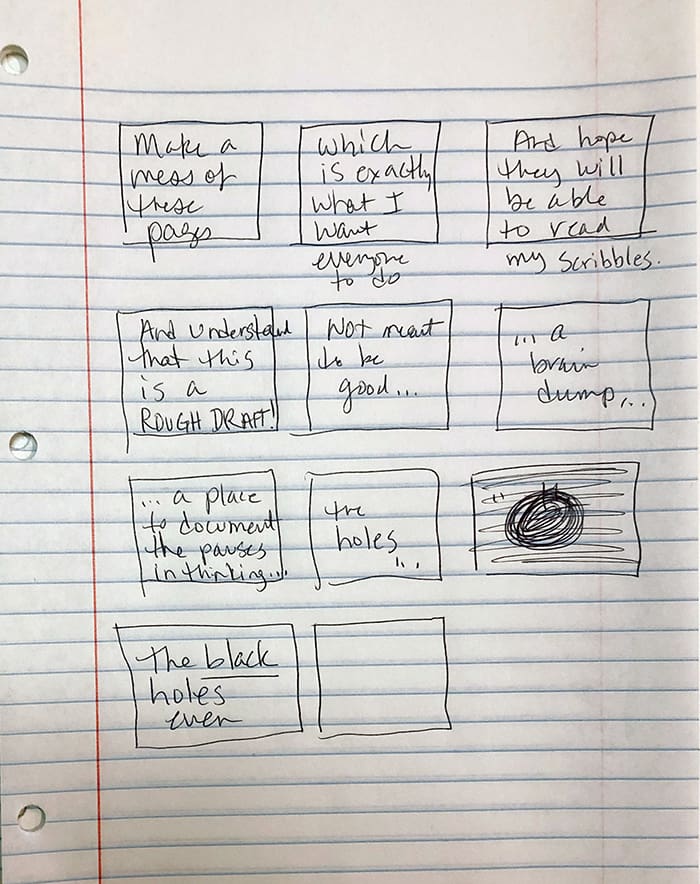 Make a
mess of
these
pages
which
is exactly
what I
want
everyone
to do
And hope
they will
be able
to read
my scribbles.
And understand
that this
is a
ROUGH DRAFT!
Not meant
to be
good...
... a
brain
dump...
... a place
to document
the pauses
in thinking...
the
holes
...
the black
holes
even